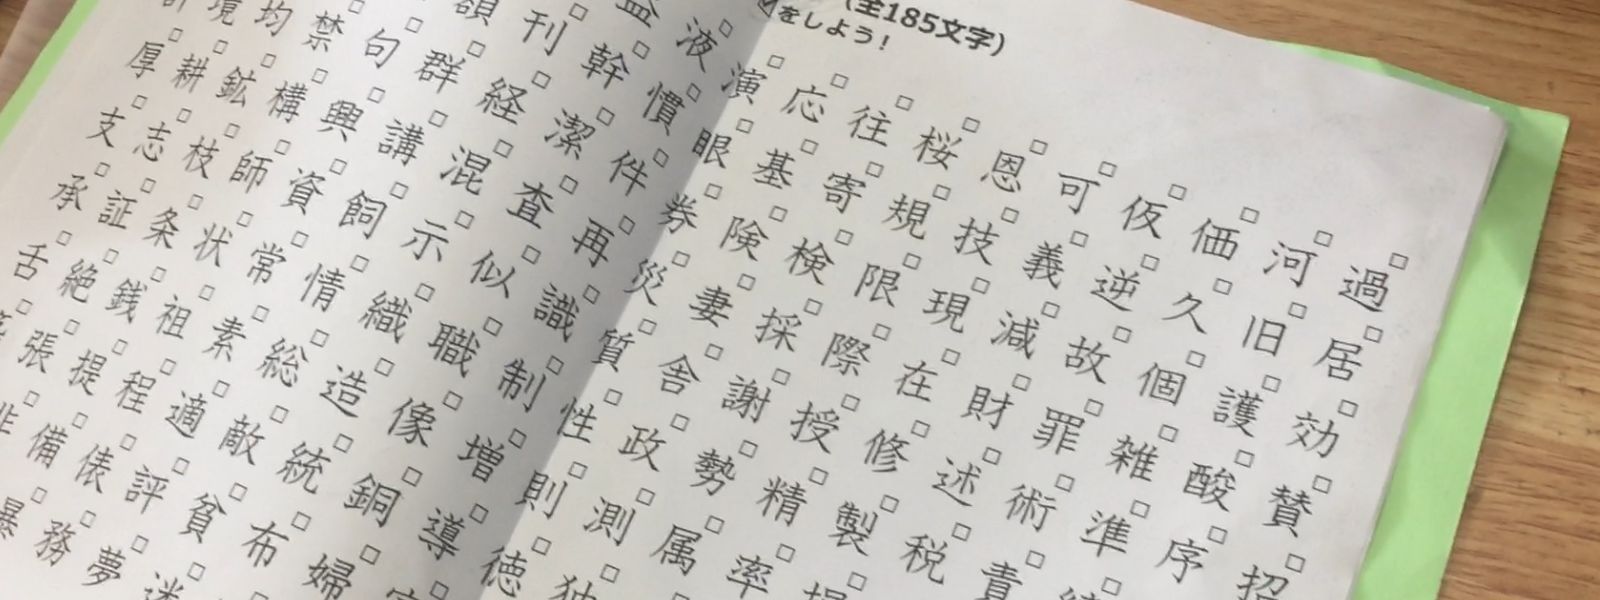 (全185文字)
をしよう！
益液演応往桜恩可仮価河過
額刊幹慣眼基寄規技義逆久旧居
境均禁句群経潔件券険検限現減故個護効
厚耕鉱構興講混査再災妻採際在財罪雑酸賛
支志枝師資飼示似識質舎謝授修述術準序招
承証条状常情織職制性政勢精製税責
舌絶銭祖素総造像増則測属率
張提程適敵統銅導徳独
備俵評貧布婦
暴務夢迷